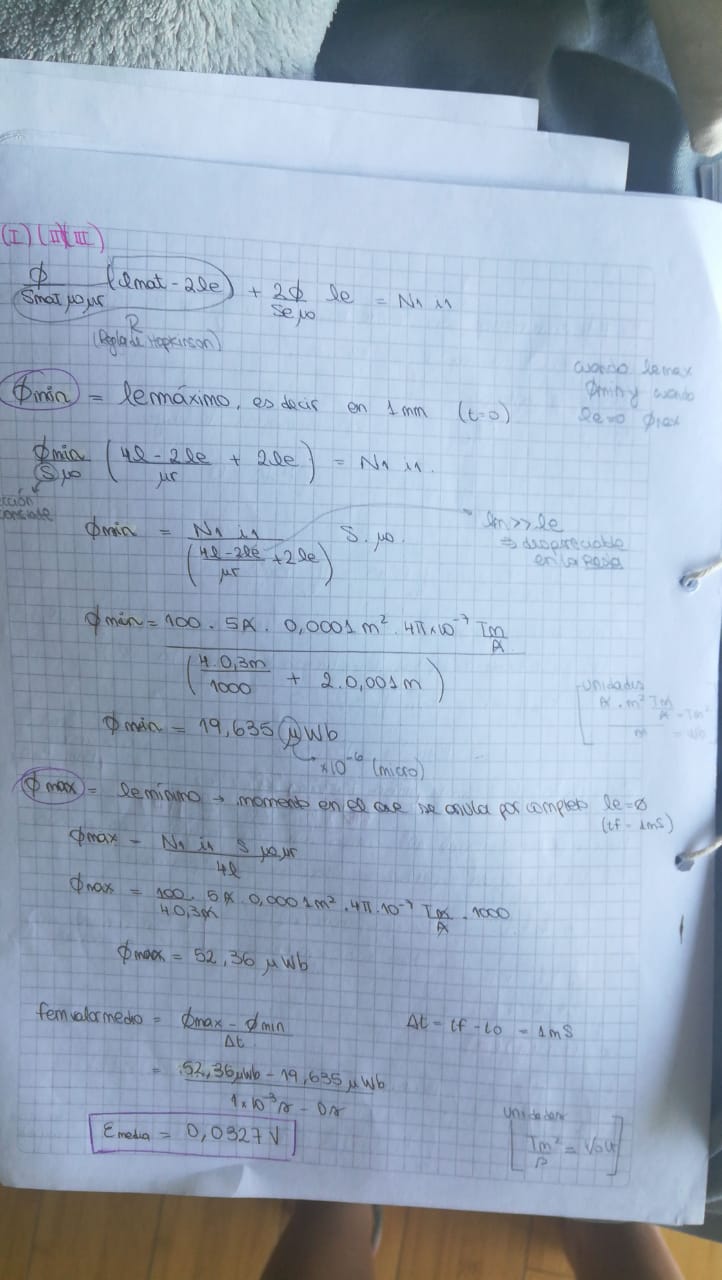 (I) (II) (III)
ϕ/(Smat μo μr) (lmat - 2le) + 2ϕ/(Se μo) le = N1 i1
R
(Regla de Hopkinson)
cuando le max
ϕmin y cuando
le=0 ϕmax
ϕmin = le máximo, es decir en 1mm (t=0)
ϕmin/(S μo) ((4l - 2le)/μr + 2le) = N1 i1.
sección
constante
ϕmin = N1 i1/((4l - 2le)/μr + 2le) S. μo.
lm >> le
⇒ despreciable
en la resta
ϕmin = 100 . 5A . 0,0001 m² . 4π×10⁻⁷ Tm/A / (4.0,3m/1000 + 2.0,001m)
Unidades
[A . m² Tm/A / m = Tm² = Wb
ϕmin = 19,635 μWb
×10⁻⁶ (micro)
ϕmax = le mínimo → momento en el que se anula por completo le=ø
(tf = 1mS)
ϕmax = N1 i1 S μo μr / 4l
ϕmax = 100 . 5A . 0,0001 m² . 4π.10⁻⁷ Tm/A . 1000 / 4 0,3m
ϕmax = 52,36 μWb
fem valor medio = (ϕmax - ϕmin)/Δt Δt = tf - to = 1mS
= (52,36 μWb - 19,635 μWb)/(1×10⁻³s - 0s)
Emedia = 0,0327 V
Unidades
[Tm²/s = Volt]